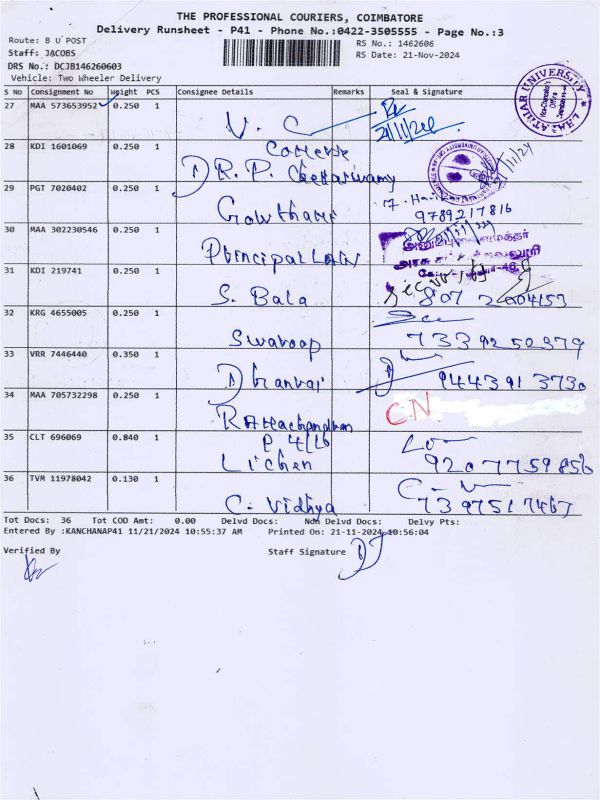 THE PROFESSIONAL COURIERS, COIMBATORE
Delivery Runsheet - P41 - Phone No.:0422-3505555 - Page No.:3
Route: B U POST
RS No.: 1462606
Staff: JACOBS
RS Date: 21-Nov-2024
DRS No.: DCJB146260603
Vehicle: Two Wheeler Delivery
S No Consignment No Weight PCS Consignee Details Remarks Seal & Signature
27 MAA 573653952 0.250 1
V. C
28 KDI 1601069 0.250 1
College
DR. P.
29 PGT 7020402 0.250 1
Gowtham
9789217816
30 MAA 302230546 0.250 1
Principal Law
31 KDI 219741 0.250 1
S. Bala
807 2004153
32 KRG 4655005 0.250 1
Swaroop
7339250379
33 VRR 7446440 0.350 1
9443913730
34 MAA 705732298 0.250 1
C.N
Ramachandran
35 CLT 696069 0.840 1
P 4/16
Lichen
9207759856
36 TVM 11978042 0.130 1
C. Vidhya
7397517467
Tot Docs: 36 Tot COD Amt: 0.00 Delvd Docs: Non Delvd Docs: Delvy Pts:
Entered By :KANCHANAP41 11/21/2024 10:55:37 AM Printed On: 21-11-2024 10:56:04
Verified By Staff Signature